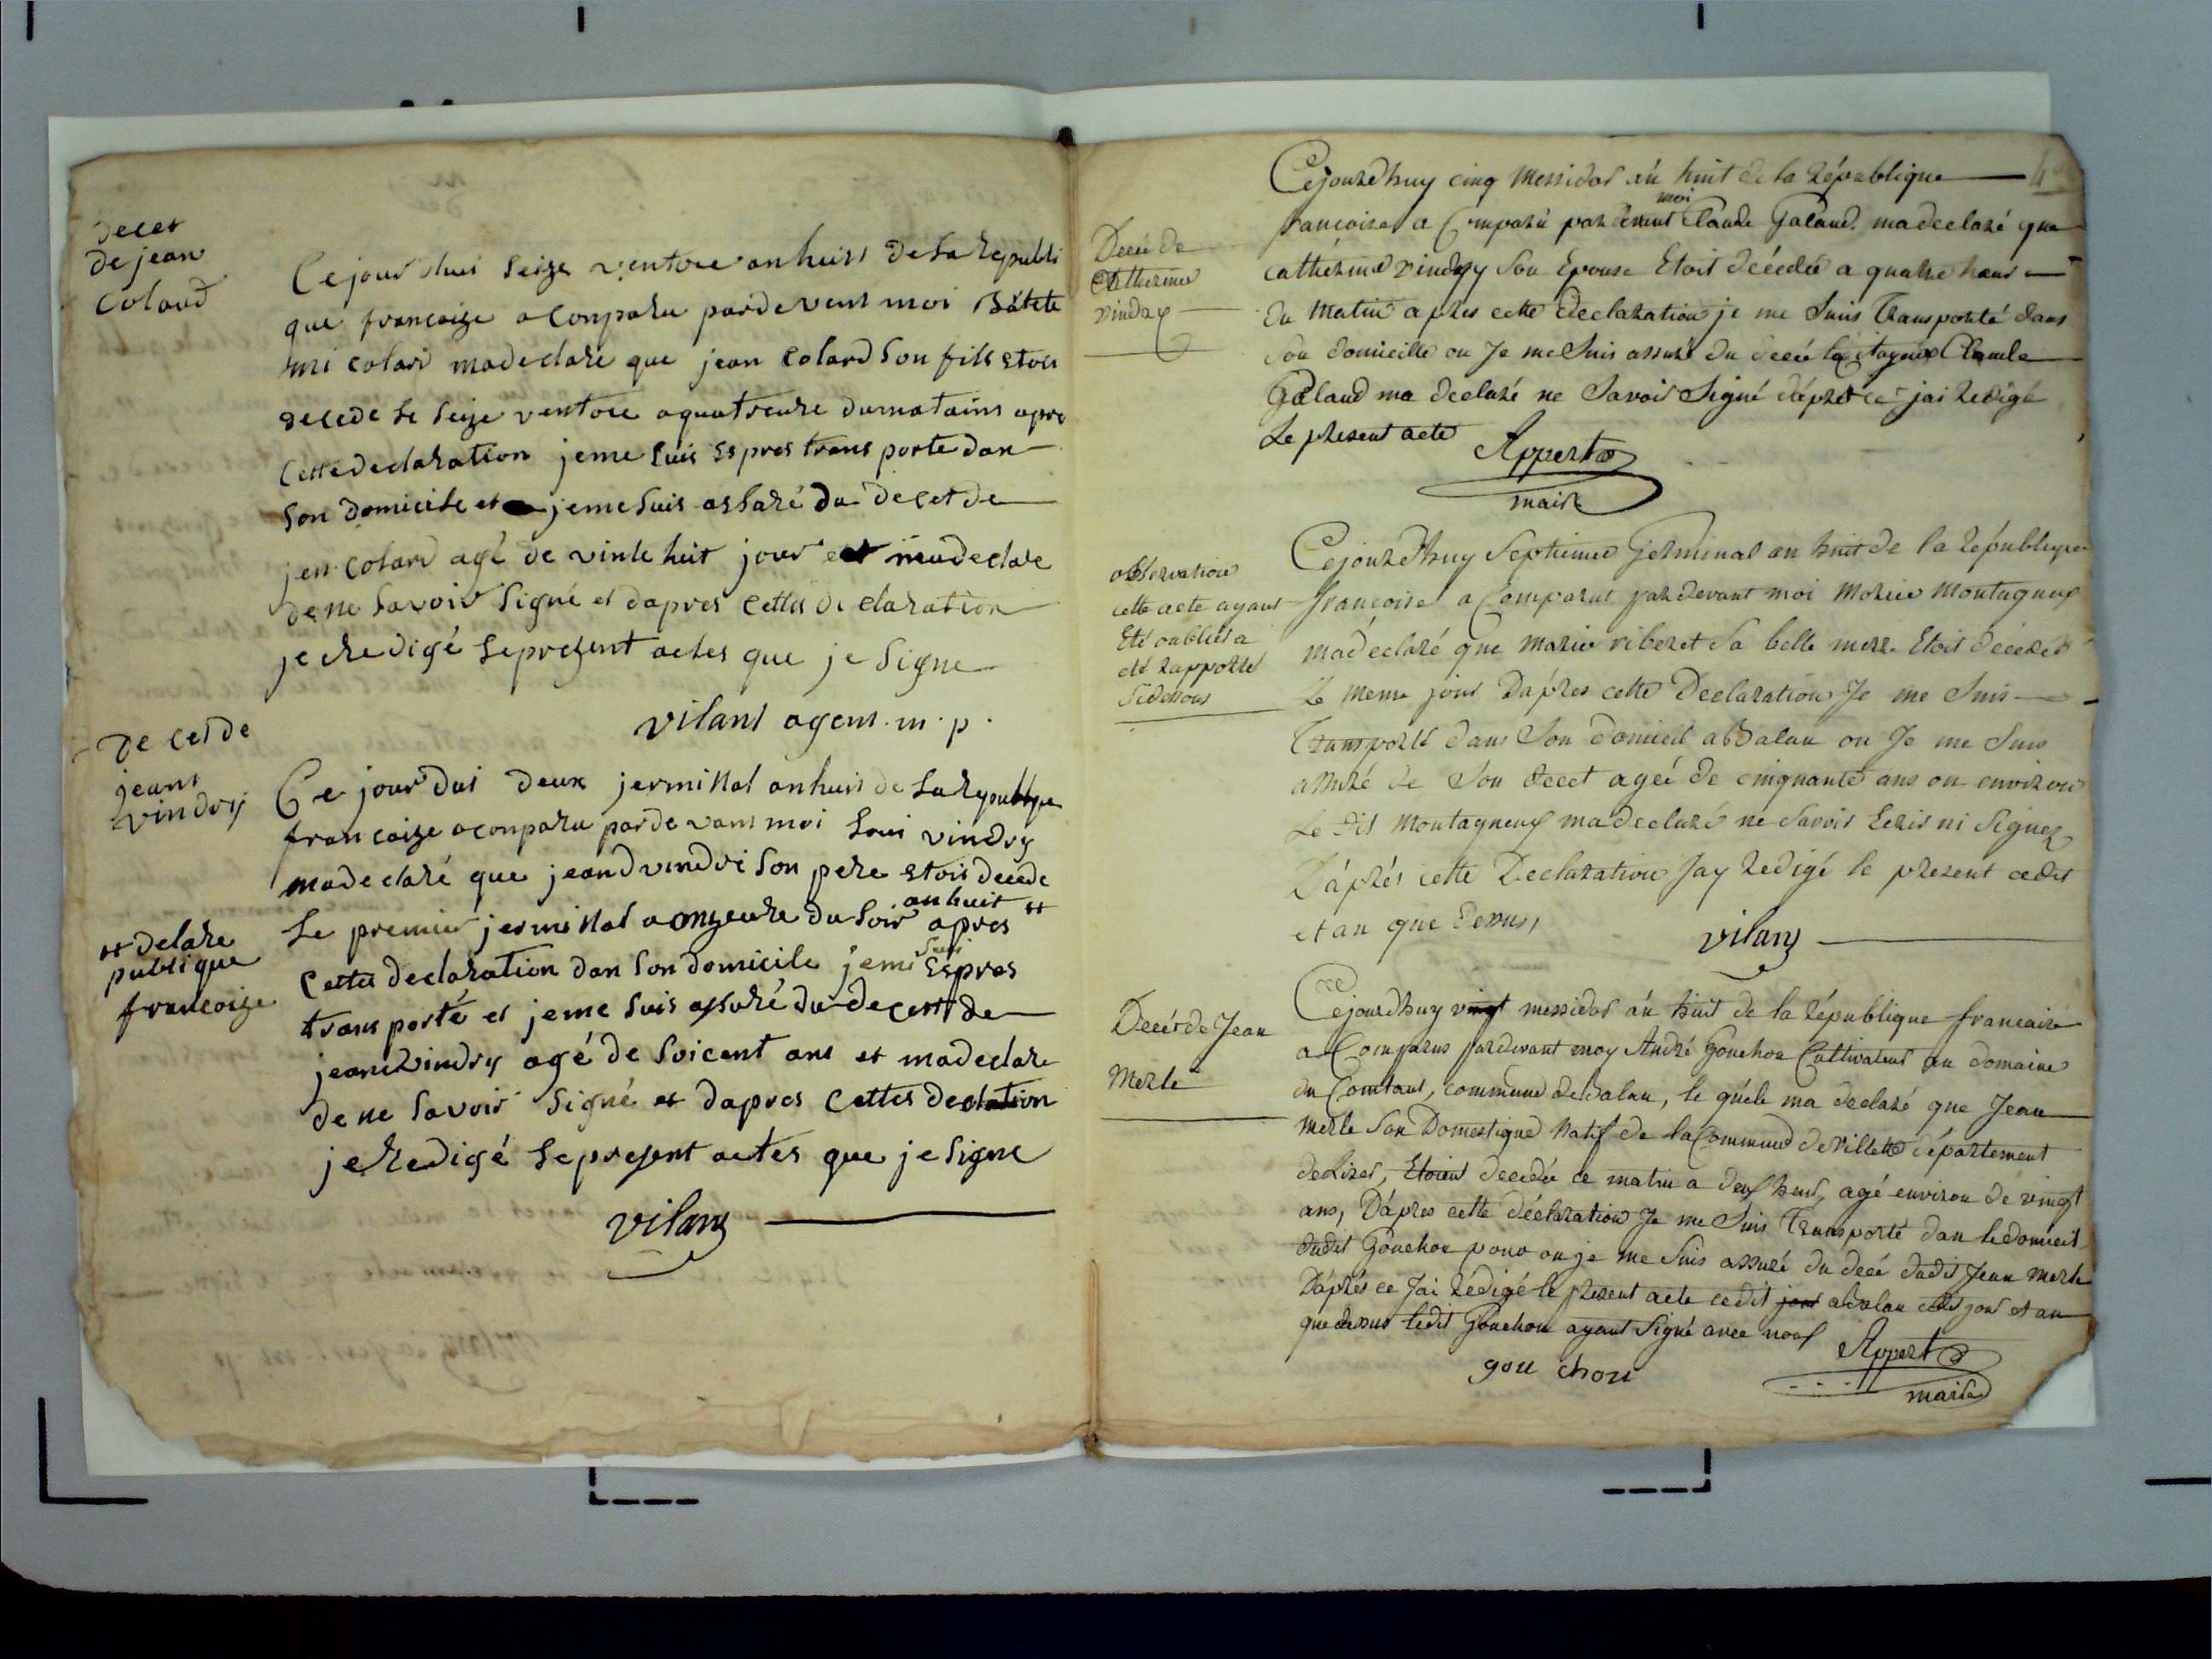 decet
de jean
colard
Ce jour dhui seize ventose an huist de la republi
que francoize a conparu pardevent moi Batete
mi colard ma declaré que jean colard son fils etoit
decede le seize ventose a quatreure du matains apre
cette declaration je me suis espres trans porte dan
son domicile et je me suis assuré du decet de
jen colard agé de vinte huit jour et ma declare
de ne savoir signé et dapres cettes declaration
je redigé le prezent actes que je signe
vilant agent m. p.
de cet de
jeant
vindry
Ce jour dui deux jerminal an huit de la republique
francoize a conparu par de vant moi loui vindry
ma declaré que jeand vindri son pere etoit decede
le premier jerminal a onzeure du soir an huit ++ apres
cettes declaration dan son domicile je me suis espres
trans porté et je me suis assuré du decet de
jean vindry agé de soicent ans et ma declare
de ne savoir signé et dapres cettes declation
je redigé le present actes que je signe
++ de la re
publique
francoize
vilant
4
Decée de
Catherine
vindry
Cejourdhuy cinq messidor an huit de la République
francoise a Comparu par devant moi Claude Galand ma declaré que
catherine vindry son Epouse Etoit décédée a quatre heur
du matin apres cette declaration je me suis transporté dans
son domicille ou Je me suis assuré du decée le citoyen Claude
Galand ma declaré ne savoir Signé d'après ce jai redigé
Le present acte
Appert
maire
observation
cette acte ayant
Eté oubliés a
eté rapporté
sidessous
Cejourdhuy Septieme Germinal an huit de la République
francoise a Comparut pardevant moi Montagneux
ma declaré que marie riberet sa belle mere Etoit décédée
le meme jour D'après cette Declaration Je me Suis
Transporté dans Son domicil a Balan ou Je me Suis
assuré de Son decet ageé de cinquante ans ou environ
Le dit Montagneux ma declaré ne savoir Ecrir ni signer
D'après cette Declaration Jay redigé le present cedit
et an que dessus,
vilant
Decés de Jean
Merle
Cejourdhuy vingt messidor an huit de la république francaise
a Comparus pardevant moy André Gouchon Cultivateur au domaine
du Contant, commune de Balan, le quele ma declaré que Jean
Merle Son Domestique natif de la Commune de Villette département
de Lizer, Etoient decedée ce matin a deux heur, agé environ de vingt
ans, D'après cette déclaration Je me Suis Transporté dan le domicil
dudit Gouchon pour ou je me Suis assuré du decé dudit Jean Merle
D'après ce Jai redigé le present acte cedit jour a Balan cedit jour et an
que dessus ledit Gouchon ayant Signé avec nous
gou chon
Appert
maire